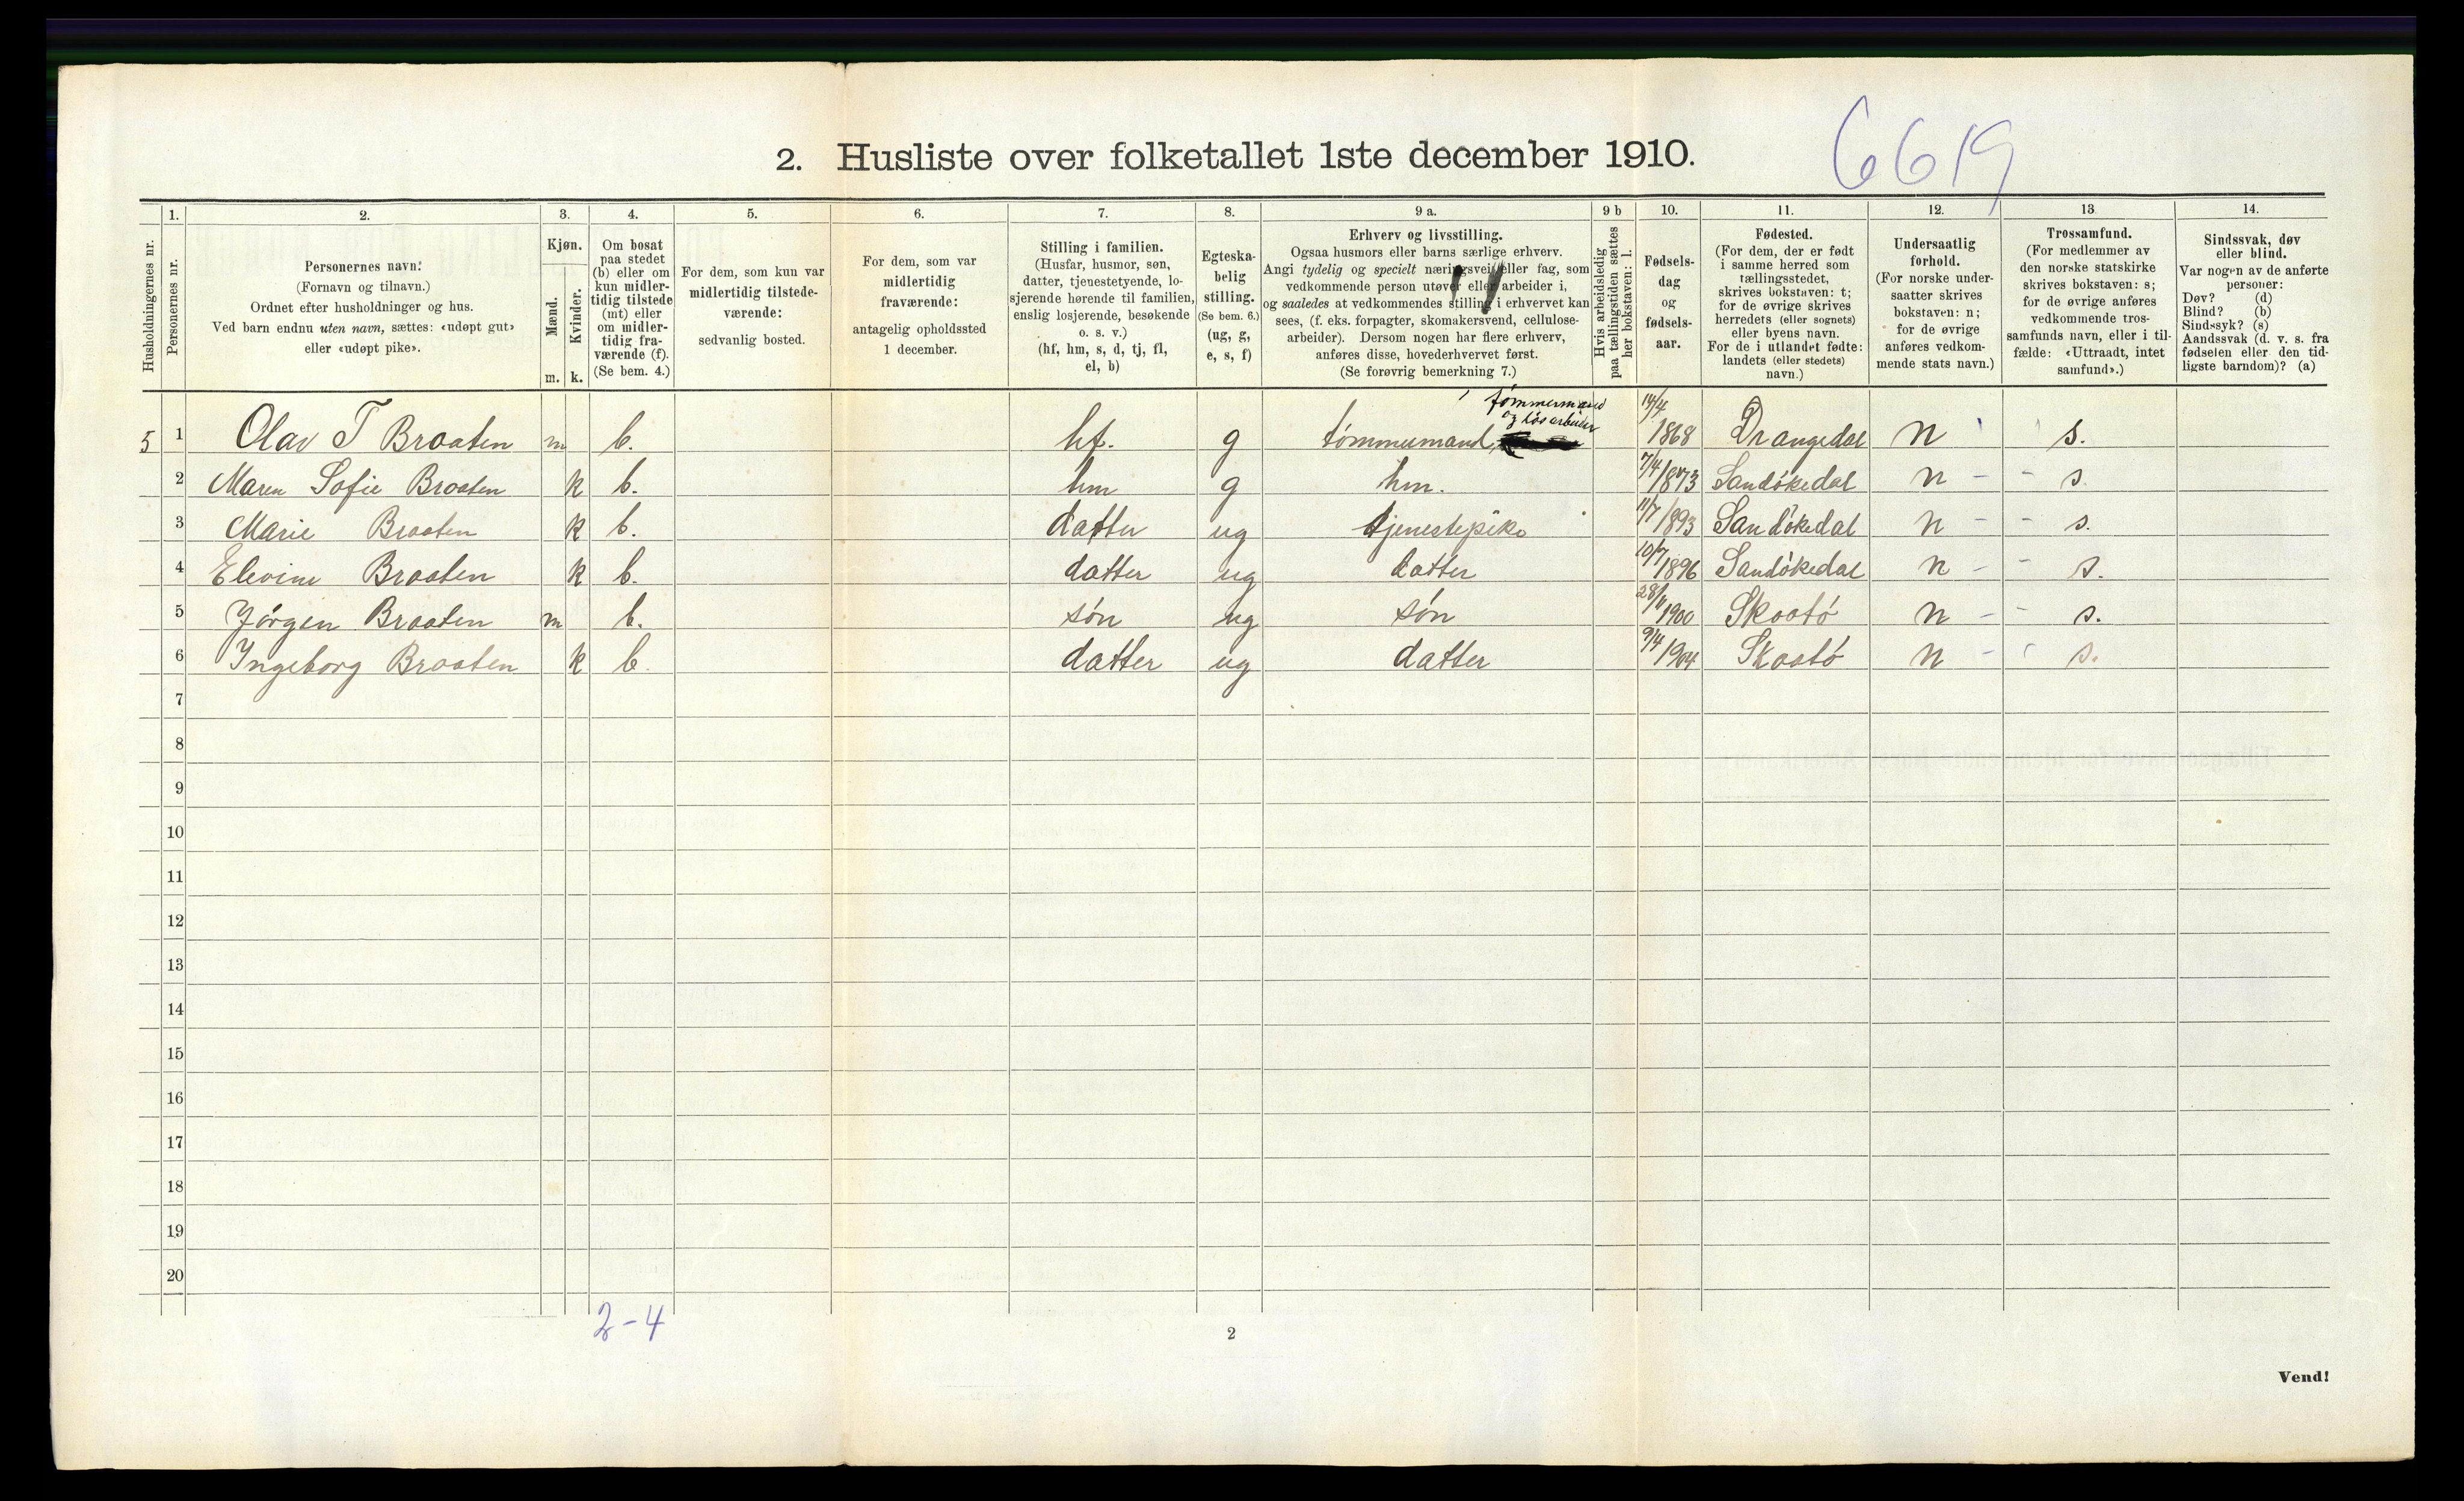 6619
2. Husliste over folketallet 1ste december 1910.
Husholdningernes nr.
1.
Personernes nr.
2.
Personernes navn:
(Fornavn og tilnavn.)
Ordnet efter husholdninger og hus.
Ved barn endnu uten navn, sættes: «udøpt gut»
eller «udøpt pike».
3.
Kjøn.
Mænd.
Kvinder.
m. k.
4.
Om bosat
paa stedet
(b) eller om
kun midler-
tidig tilstede
(mt) eller
om midler-
tidig fra-
værende (f).
(Se bem. 4.)
5.
For dem, som kun var
midlertidig tilstede-
værende:
sedvanlig bosted.
6.
For dem, som var
midlertidig
fraværende:
antagelig opholdssted
1 december.
7.
Stilling i familien.
(Husfar, husmor, søn,
datter, tjenestetyende, lo-
sjerende hørende til familien,
enslig losjerende, besøkende
o. s. v.)
(hf, hm, s, d, tj, fl,
el, b)
8.
Egteska-
belig
stilling.
(Se bem. 6.)
(ug, g,
e, s, f)
9 a.
Erhverv og livsstilling.
Ogsaa husmors eller barns særlige erhverv.
Angi tydelig og specielt næringsvei eller fag, som
vedkommende person utøver eller arbeider i,
og saaledes at vedkommendes stilling i erhvervet kan
sees, (f. eks. forpagter, skomakersvend, cellulose-
arbeider). Dersom nogen har flere erhverv,
anføres disse, hovederhvervet først.
(Se forøvrig bemerkning 7.)
9 b
Hvis arbeidsledig
paa tællingstiden sættes
her bokstaven: l.
10.
Fødsels-
dag
og
fødsels-
aar.
11.
Fødested.
(For dem, der er født
i samme herred som
tællingsstedet,
skrives bokstaven: t;
for de øvrige skrives
herredets (eller sognets)
eller byens navn.
For de i utlandet fødte:
landets (eller stedets)
navn.)
12.
Undersaatlig
forhold.
(For norske under-
saatter skrives
bokstaven: n;
for de øvrige
anføres vedkom-
mende stats navn.)
13.
Trossamfund.
(For medlemmer av
den norske statskirke
skrives bokstaven: s;
for de øvrige anføres
vedkommende tros-
samfunds navn, eller i til-
fælde: «Uttraadt, intet
samfund».)
14.
Sindssvak, døv
eller blind.
Var nogen av de anførte
personer:
Døv? (d)
Blind? (b)
Sindssyk? (s)
Aandssvak (d. v. s. fra
fødselen eller den tid-
ligste barndom)? (a)
tømmermand
og løsarbeider
5 1 Olav T Braaten m b. hf. g tømmermand, 14/4 1868 Drangedal n s.
2 Maren Sofie Braaten k b. hm g hm. 7/4 1873 Sandøkedal n - - s.
3 Marie Braaten k b. datter ug tjenestepike 11/7 1893 Sandøkedal n - - s.
4 Elevine Braaten k b. datter ug datter 10/7 1896 Sandøkedal n - - s.
5 Jørgen Braaten m b. søn ug søn 28/11 1900 Skaatø n - - s.
6 Ingeborg Braaten k b. datter ug datter 9/4 1904 Skaatø n - s.
7
8
9
10
11
12
13
14
15
16
17
18
19
20
2-4
2
Vend!